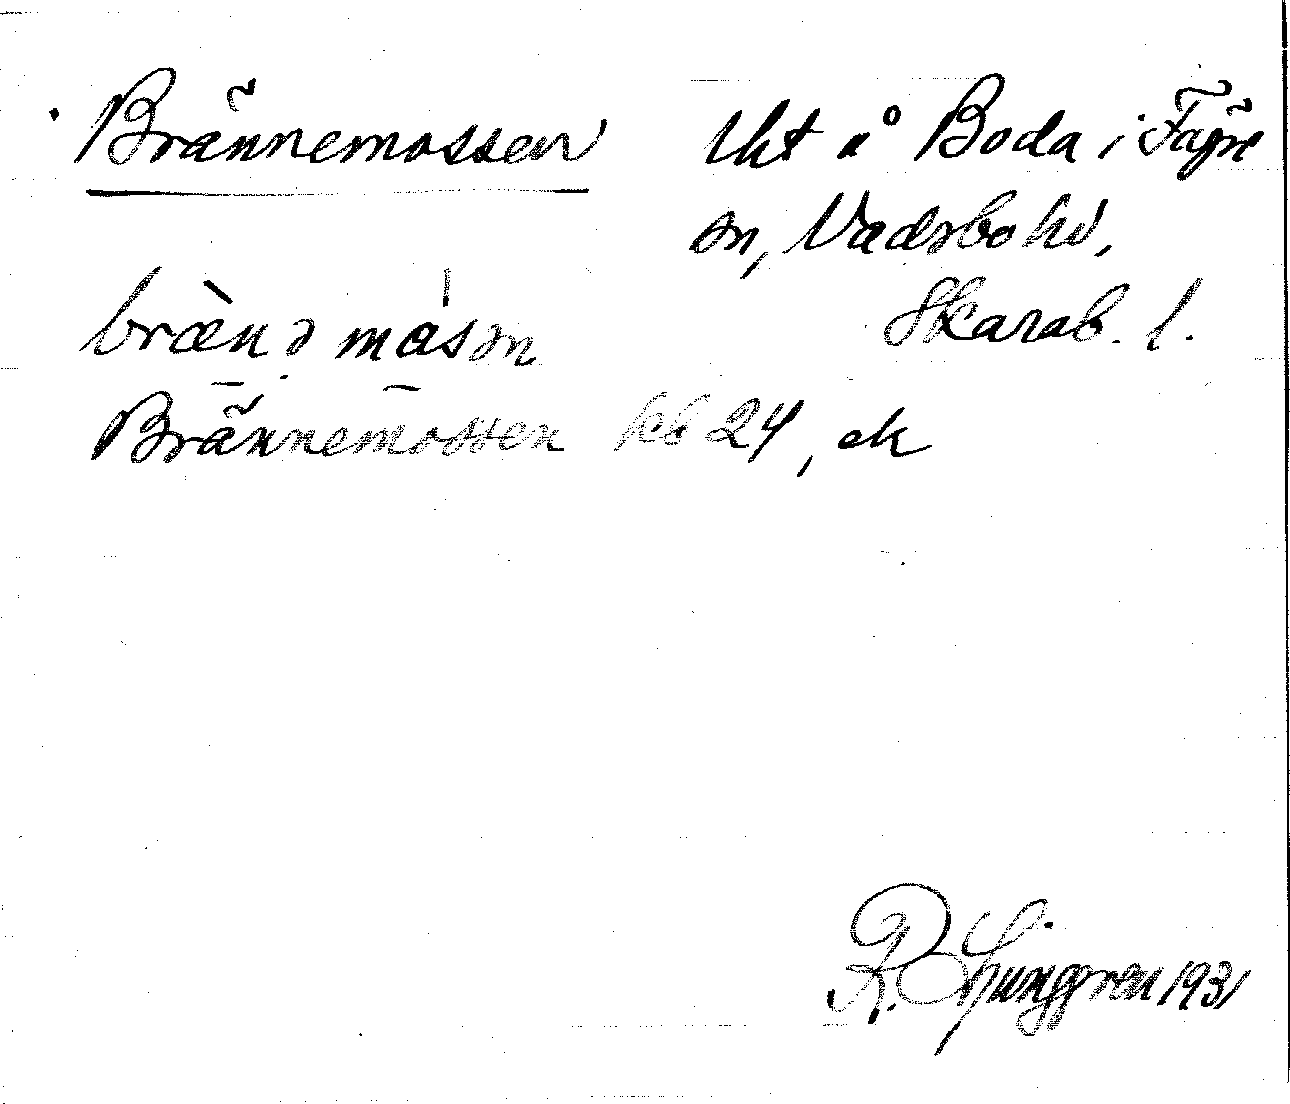 Brännemossen
tht å Boda i Fägre
sn, Vadsbo hd,
Skarab. l.
brænə måsən
Brännemossen kb 24, ek
R. Ljunggren 1931